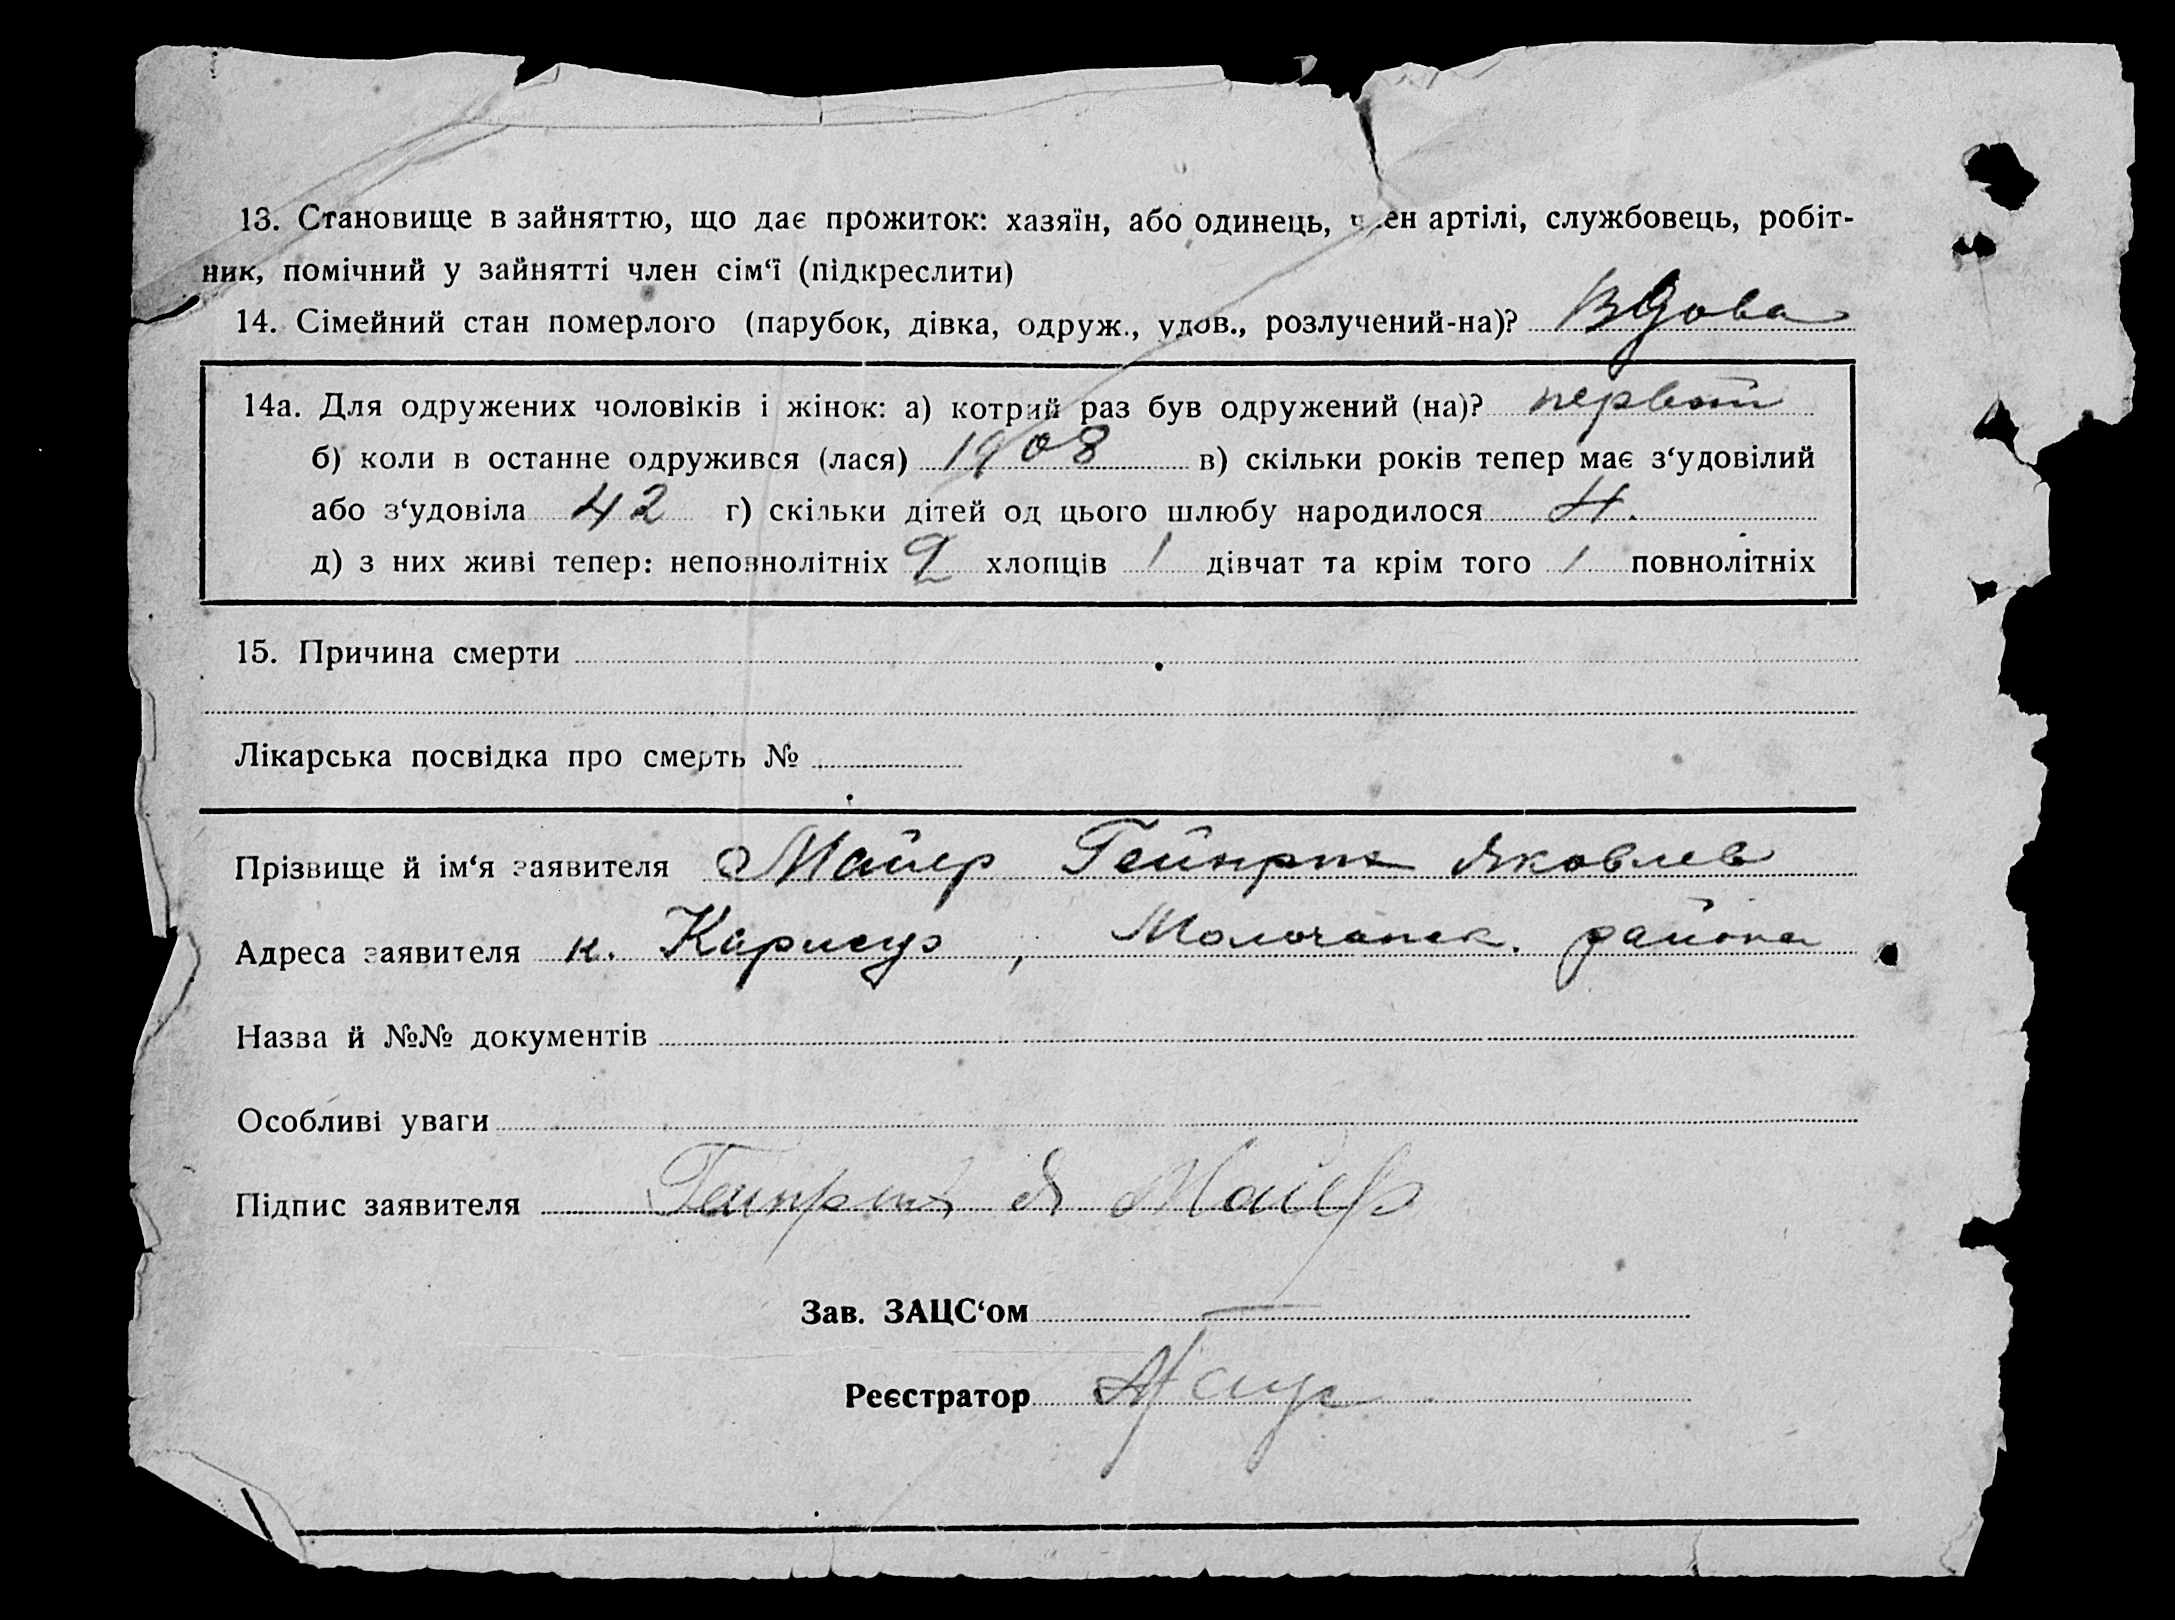 13. Становище в зайняттю, що дає прожиток: хазяїн, або одинець, член артілі, службовець, робіт-
ник, помічний у зайнятті член сім‘ї (підкреслити)
14. Сімейний стан померлого (парубок, дівка, одруж., удов., розлучений-на)? Вдова
14а. Для одружених чоловіків і жінок: а) котрий раз був одружений (на)? первый
б) коли в останне одружився (лася) 1908 в) скільки років тепер має з‘удовілий
або з‘удовіла 42 г) скільки дітей од цього шлюбу народилося 4.
д) з них живі тепер: неповнолітніх 2 хлопців 1 дівчат та крім того 1 повнолітніх
15. Причина смерти
Лікарська посвідка про смерть №
Прізвище й ім‘я заявителя Майер Гейнрих Яковлев
Адреса заявителя к. , Молочанск. района
Назва й №№ документів
Особливі уваги
Підпис заявителя Гейнрих Я Майер
Зав. ЗАЦС‘ом
Реєстратор